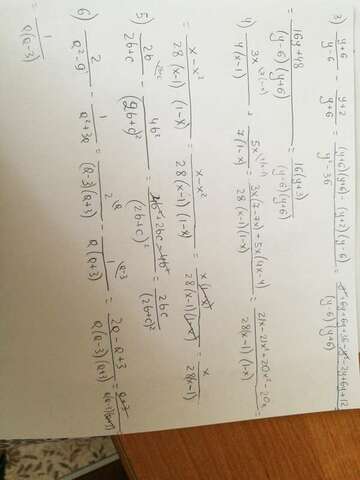 3) (y+6)/(y-6) - (y+2)/(y+6) = ((y+6)(y+6) - (y+2)(y-6))/(y²-36) = (y²+6y+6y+36-y²-2y+6y+12)/((y-6)(y+6))
= (16y+48)/((y-6)(y+6)) = (16(y+3))/((y-6)(y+6))
4) 3x/(4(x-1)) + 5x/(7(1-x)) = (3x(7-7x)+5x(4x-4))/(28(x-1)(1-x)) = (21x-21x²+20x²-20x)/(28(x-1)(1-x))
= (x-x²)/(28(x-1)(1-x)) = (x-x²)/(28(x-1)(1-x)) = (x(1-x))/(28(x-1)(1-x)) = x/(28(x-1))
5) 2b/(2b+c) - 4b²/(2b+c)² = (4b²+2bc-4b²)/(2b+c)² = 2bc/(2b+c)²
6) 2/(a²-9) - 1/(a²+3a) = 2/((a-3)(a+3)) - 1/(a(a+3)) = (2a-a+3)/(a(a-3)(a+3)) =
1/(a(a-3))